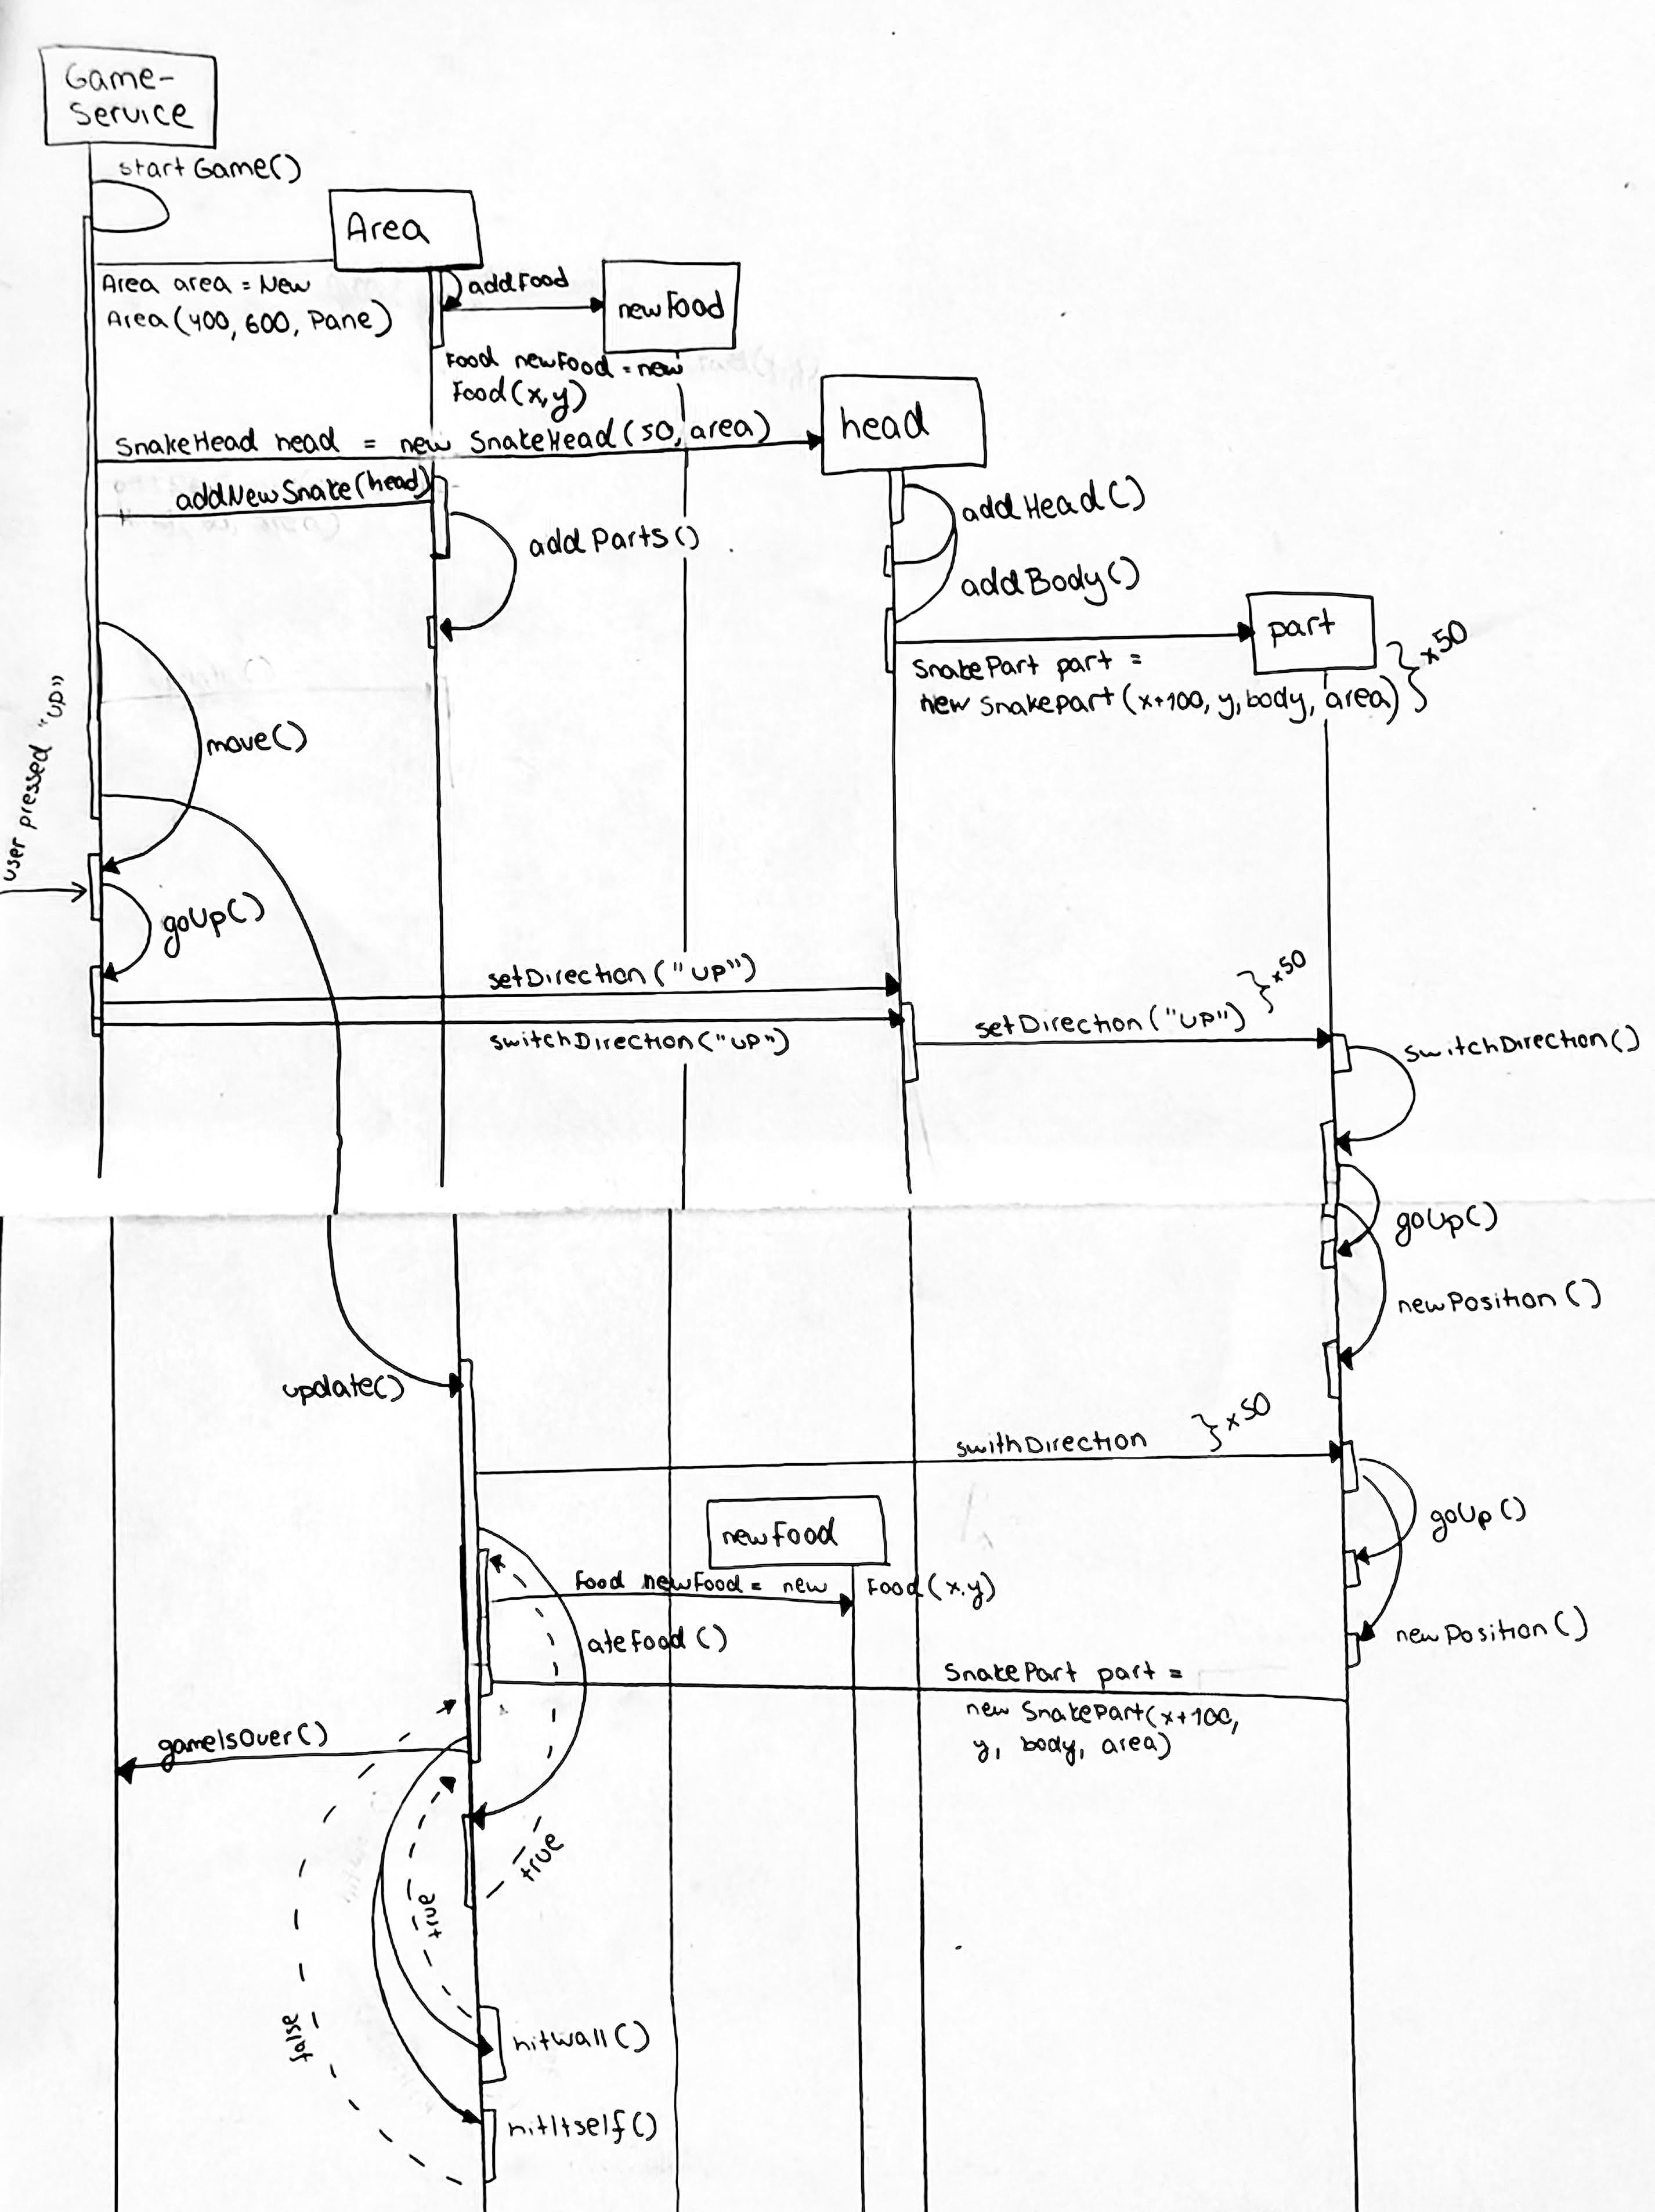 Game-
Service
startGame()
Area
Area area = New
Area(400, 600, Pane)
addFood
newFood
Food newFood = new
Food(x,y)
head
SnakeHead head = new SnakeHead(50, area)
addNewSnake(head)
addParts()
addHead()
addBody()
part
SnakePart part =
new SnakePart(x+100, y, body, area)
}x50
move()
user pressed "up"
goUp()
setDirection("up")
switchDirection("up")
setDirection("up")
}x50
switchDirection()
goUp()
newPosition()
update()
swithDirection
}x50
goUp()
newFood
Food newFood = new Food(x,y)
ateFood()
newPosition()
SnakePart part =
new SnakePart(x+100,
y, body, area)
gameIsOver()
true
true
false
hitWall()
hitItself()